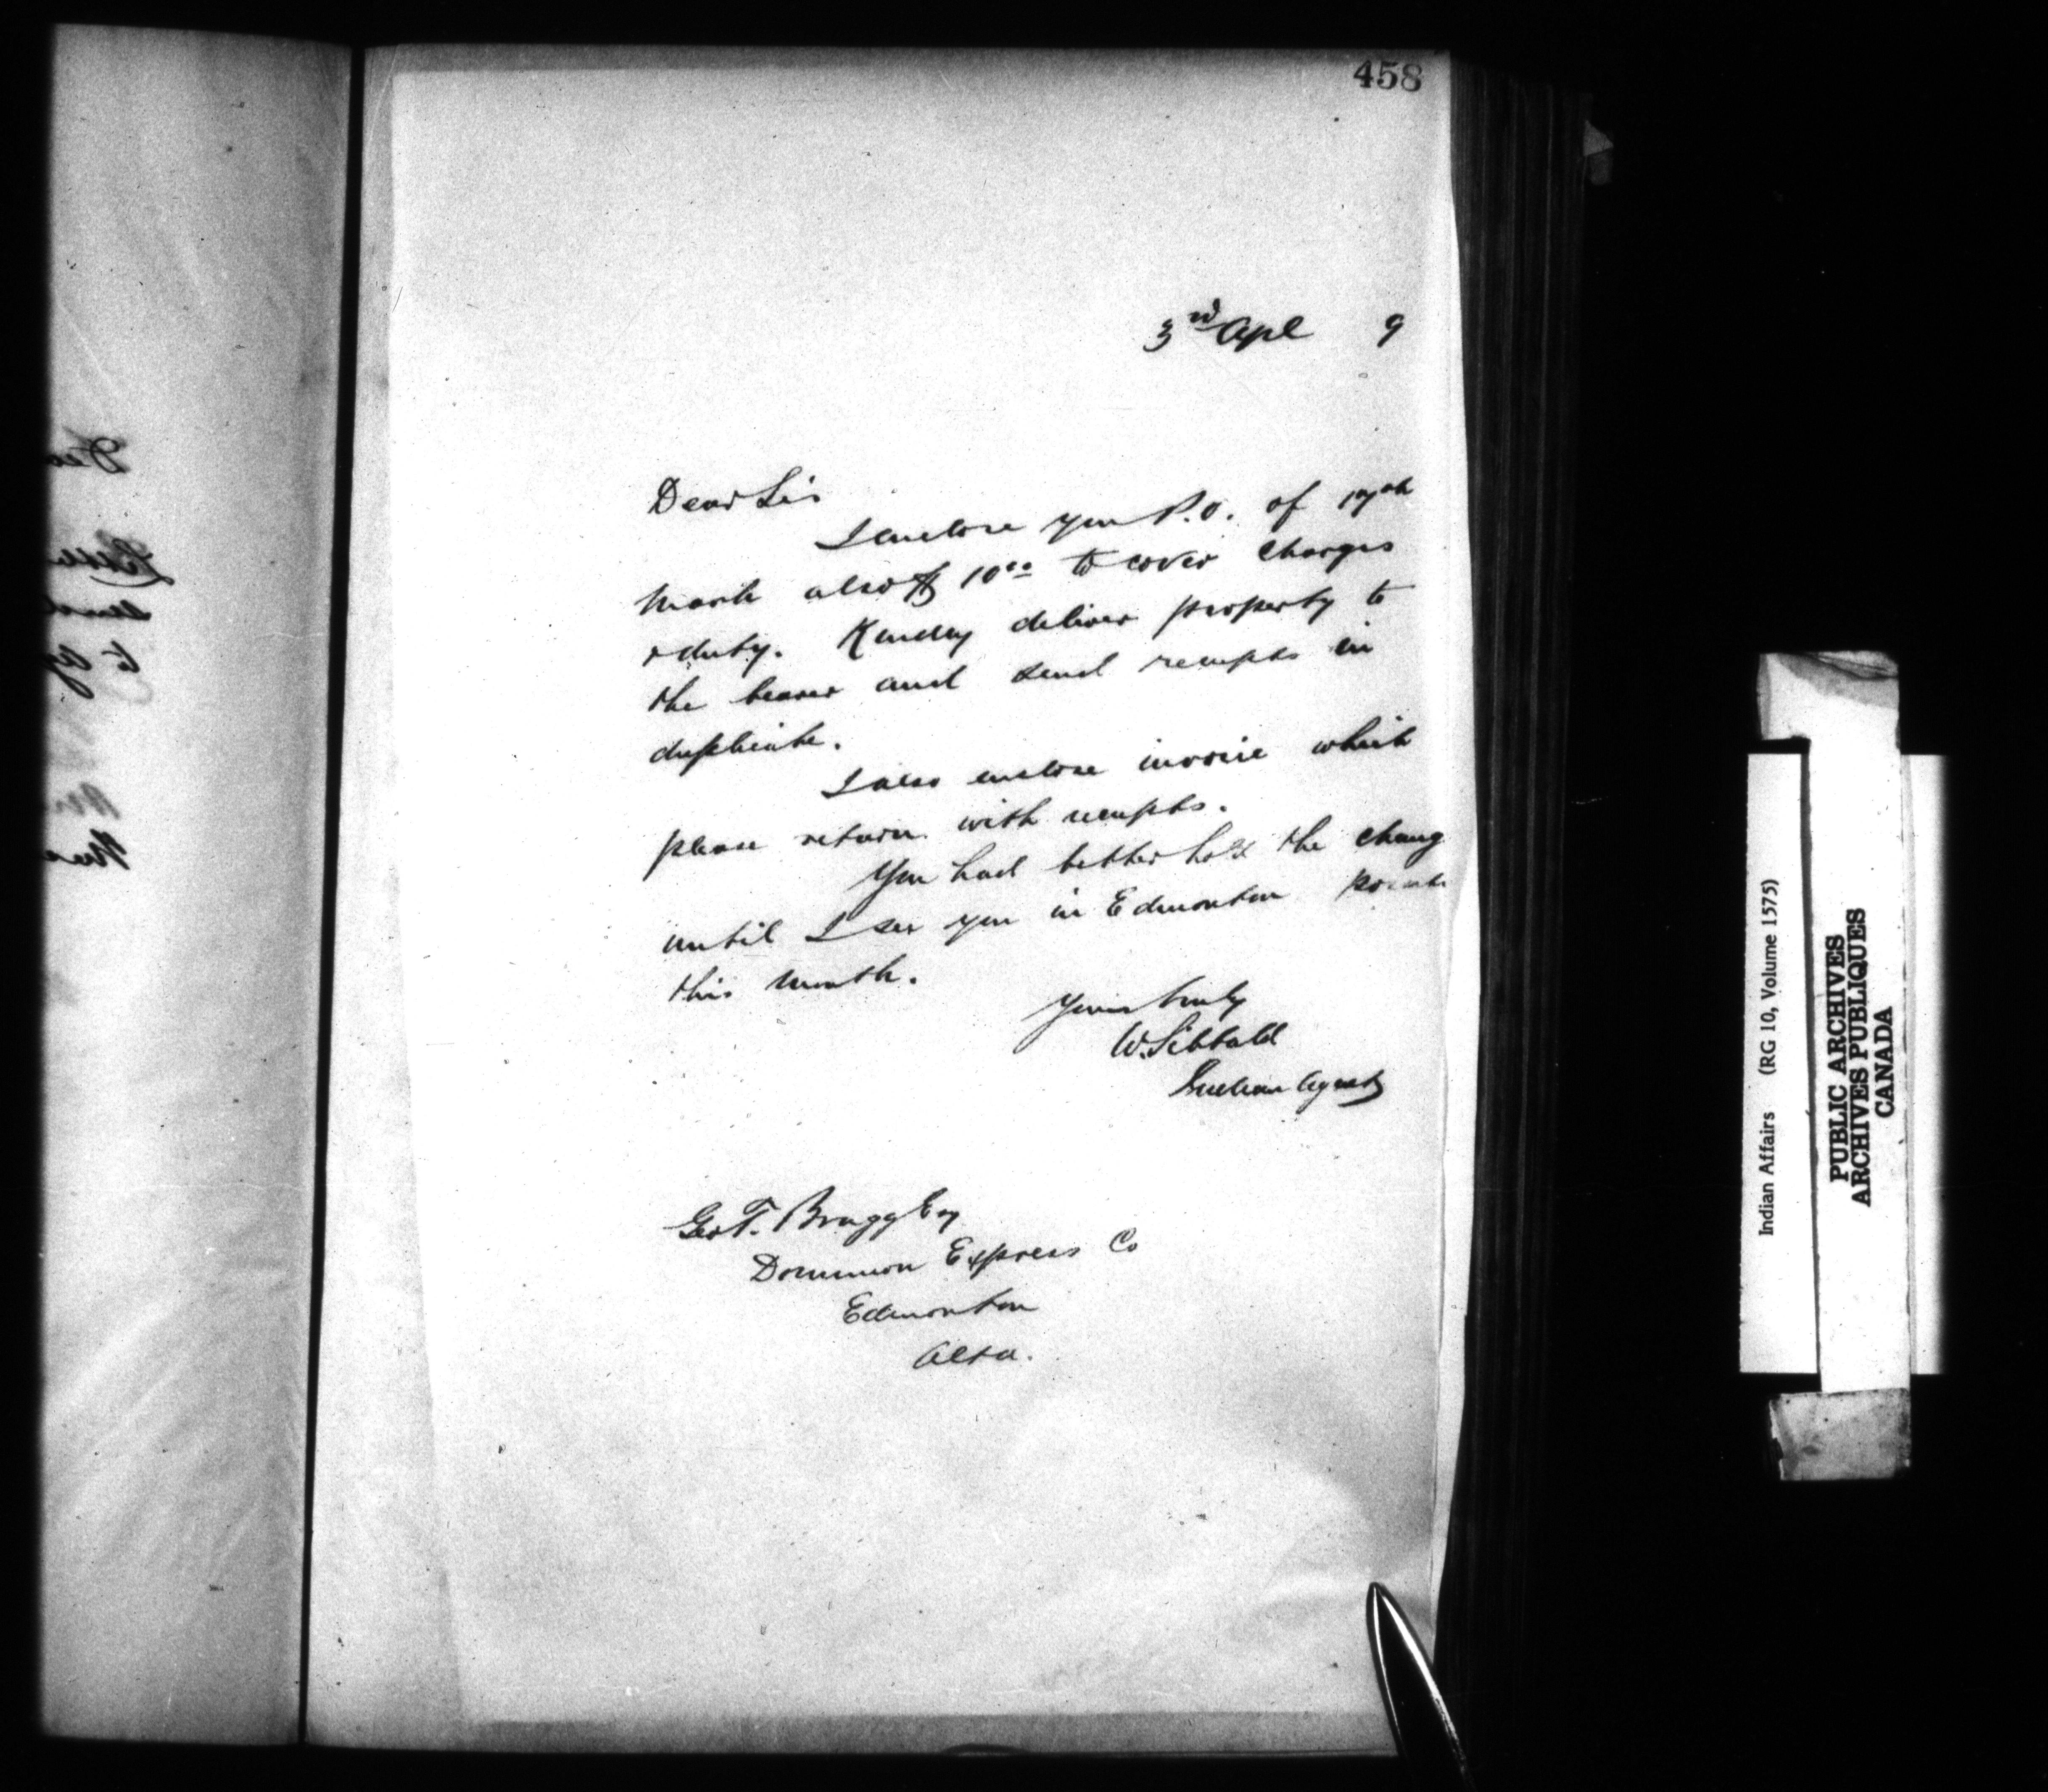 458
3rd Apl 9
Dear Sir
I enclose your P.O. of 17th
March also $10.00 to cover charges
& duty. Kindly deliver property to
the bearer and send receipts in
duplicate.
I also enclose invoice which
please return with receipts.
You had better hold the chang
until I see you in Edmonton
this month.
Yours truly
W. Sibbald
Indian Agent
Geo T. Bragg Esq
Dominion Express Co
Edmonton
Alta.
Indian Affairs (RG 10, Volume 1575)
PUBLIC ARCHIVES
ARCHIVES PUBLIQUES
CANADA